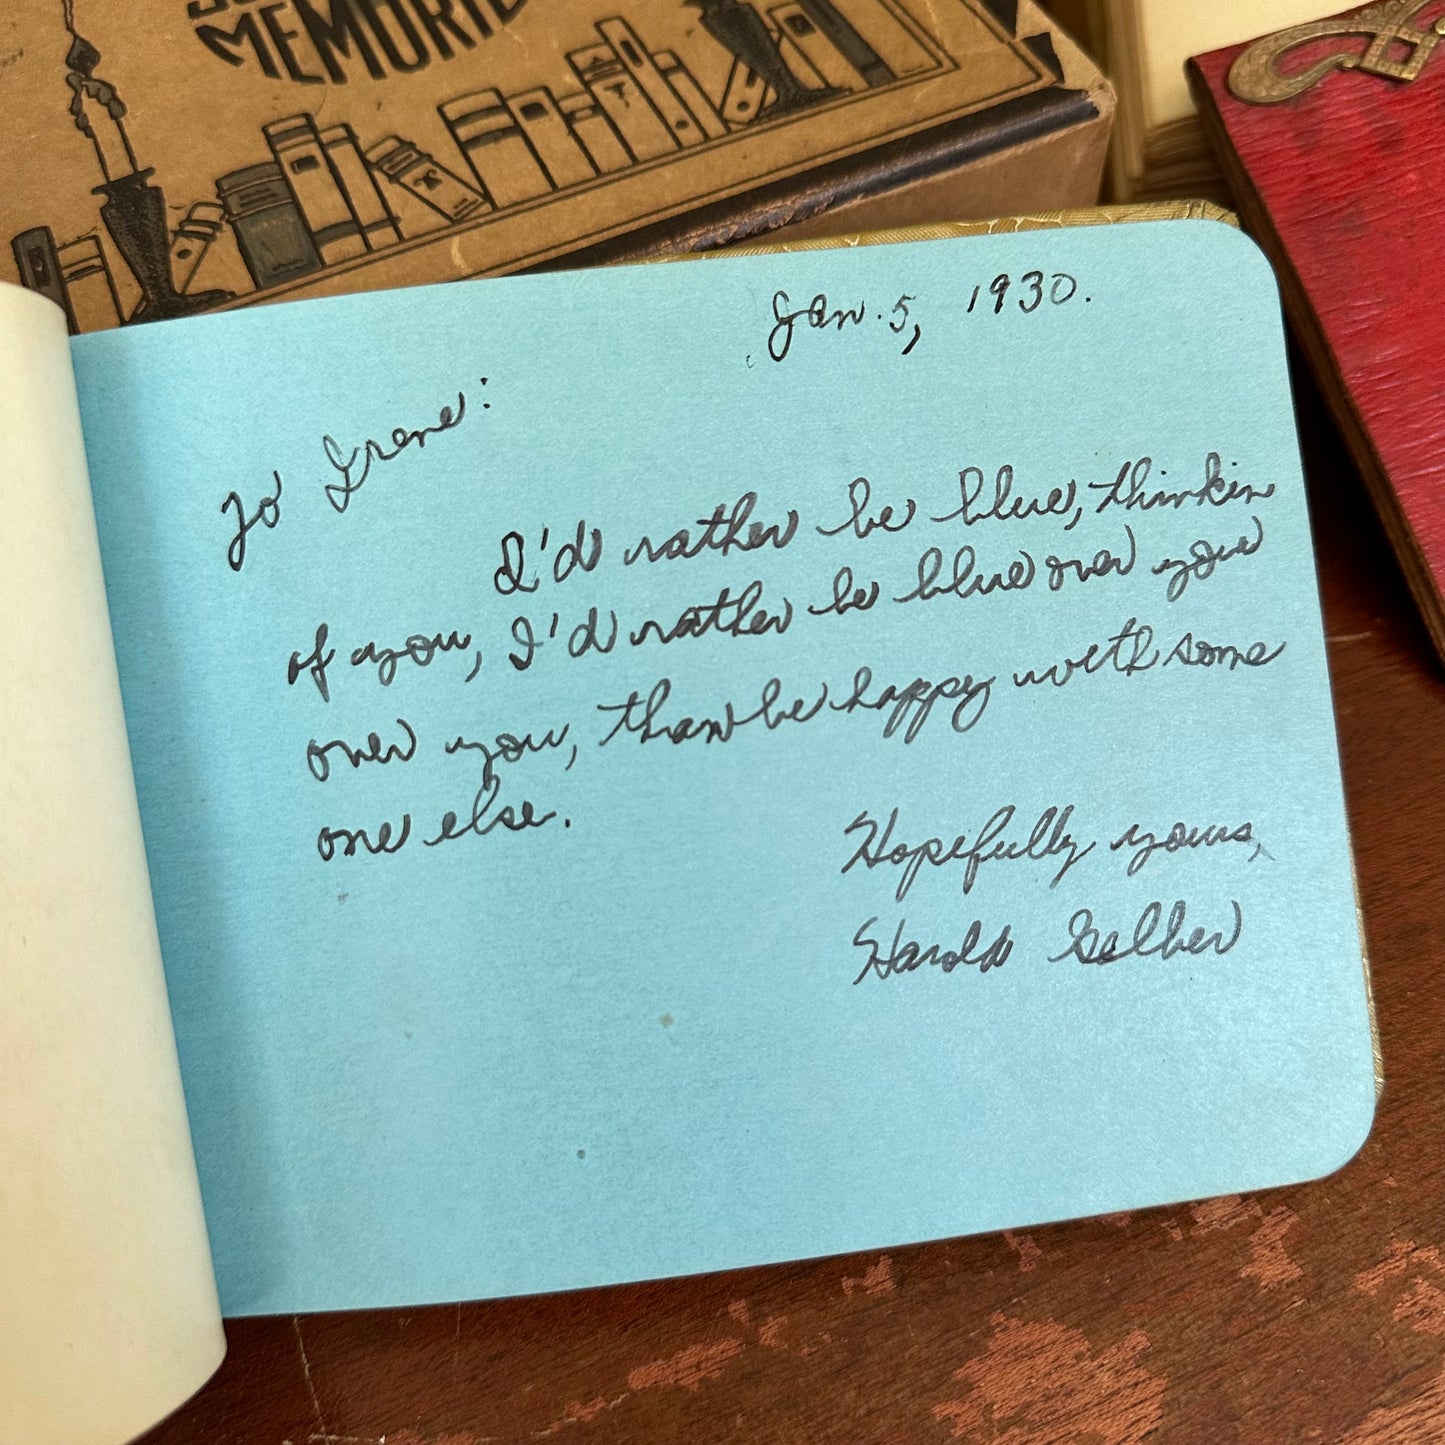 MEMORIE
Jan. 5, 1930.
To Irene:
I'd rather be blue, thinkin
of you, I'd rather be blue over you
over you, than be happy with some
one else.
Hopefully yours,
Harold Gelber